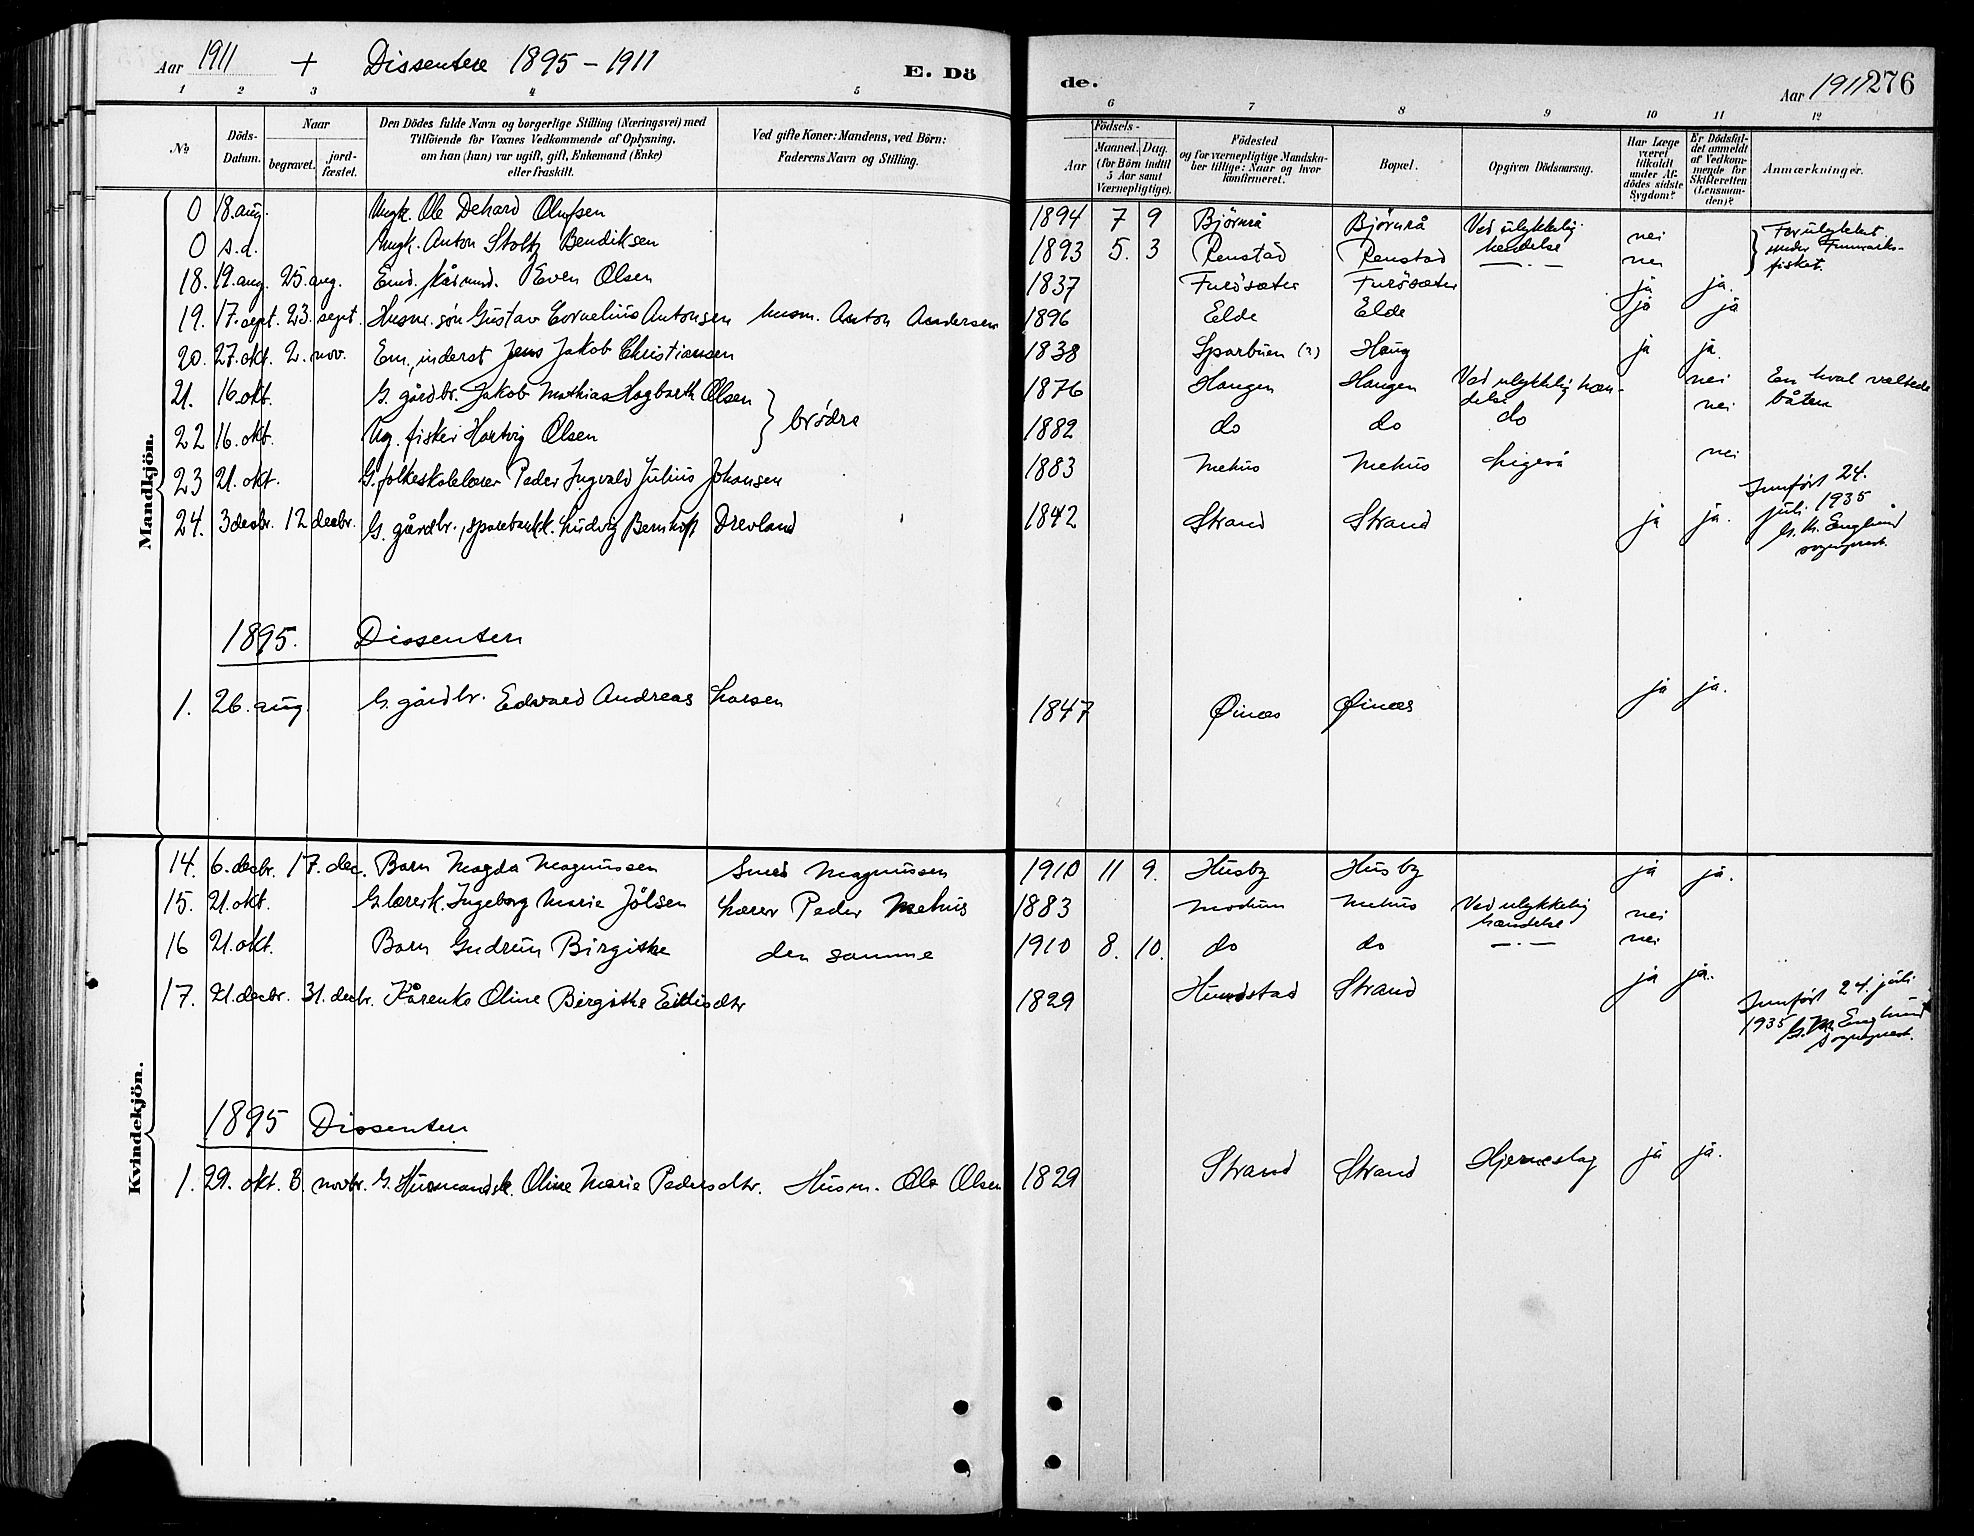 Aar 1911 + Dissentere 1895 - 1911 E. Dö
1 2 3 4 5
№ Döds-Datum. Naar begravet. jord-fæstet. Den Dödes fulde Navn og borgerlige Stilling (Næringsvei) med Tilföiende for Voxnes Vedkommende af Oplysning, om han (hun) var ugift, gift, Enkemand (Enke) eller fraskilt. Ved gifte Koner: Mandens, ved Börn: Faderens Navn og Stilling.
Mandkjön.
0 18. aug. Ungk. Ole Dehard Olufsen
0 s.d. Ungk. Anton Stoltz Bendiksen
18. 19. aug. 25. aug. Emd. kårmd. Even Olsen
19. 17. sept. 23. sept. Husm. sön Gustav Cornelius Antonsen husm. Anton Andersen
20. 27. okt. 2. nov. Em., inderst Jens Jakob Christiansen
21. 16. okt. G. gårdbr. Jakob Mathias Hagbarth Olsen
22 16. okt. Ug. fisker Hartvig Olsen } brödre
23 21. okt. G. folkeskolelærer Peder Ingvald Julius Johansen
24. 3 decbr. 12 decbr. G. gårdbr., sparebankk. Ludvig Bernhoft Drevland
1895. Dissentere
1. 26. aug. G. gårdbr. Edvard Andreas Larsen
Kvindekjön.
14. 6. decbr. 17. dec. Barn Magda Magnussen Smed Magnussen
15. 21. okt. G. lærerk. Ingeborg Marie Jölsen Lærer Peder Mehus
16 21. okt. Barn Gudrun Birgitte den samme
17. 21. decbr. 31. decbr. Kårenke Oline Birgitte Eilisdtr
1895 Dissentere
1. 29. okt. 3. novbr. G. Husmandsk. Oline Marie Pedersdtr. Husm. Ole Olsen
de. Aar 1911 276
6 7 8 9 10 11 12
Födsels- Aar Maaned. Dag. (for Börn indtil 5 Aar samt Værnepligtige). Födested og for værnepligtige Mandska-ber tillige: Naar og hvor konfirmeret. Bopæl. Opgiven Dödsaarsag. Har Læge været tilkaldt under Af-dödes sidste Sygdom? Er Dödsfal-det anmeldt af Vedkom-mende for Skifteretten (Lensman-den)? Anmærkninger.
1894 7 9 Björnrå Björnrå Ved ulykkelig hendelse nei } Forulykket under Finnmarks-fisket.
1893 5. 3 Renstad Renstad —.— nei
1837 Furösæter Furösæter ja ja.
1896 Elde Elde ja ja
1838 Sparbuen (?) Haug ja ja.
1876 Haugen Haugen Ved ulykkelig hæn-delse nei En hval veltede båten
1882 do do do nei
1883 Mehus Mehus Ligeså nei
1842 Strand Strand ja ja. Innfört 24. juli 1935 G. M. Englund sogneprest.
1847 Øinæs Øinæs ja ja.
1910 11 9. Husby Husby ja ja.
1883 Modum Mehus Ved ulykkelig hændelse nei
1910 8. 10. do do —.— nei
1829 Hundstad Strand ja ja. Innfört 24. juli 1935 G. M. Englund sogneprest.
1829 Strand Strand Hjerneslag ja ja.